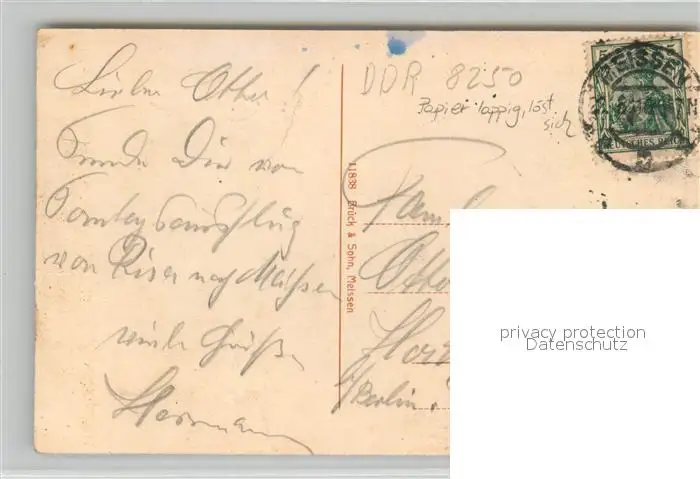 Lieber Otto!
Sende Dir von
Sonntagsausflug
von Riesa nach Meißen
viele Grüße
Hermann
11838 Brück & Sohn, Meissen
DDR 8250
Papier lappig, löst
sich
5
MEISSEN
DEUTSCHES REICH
Fam
Otto
/Berlin.
privacy protection
Datenschutz